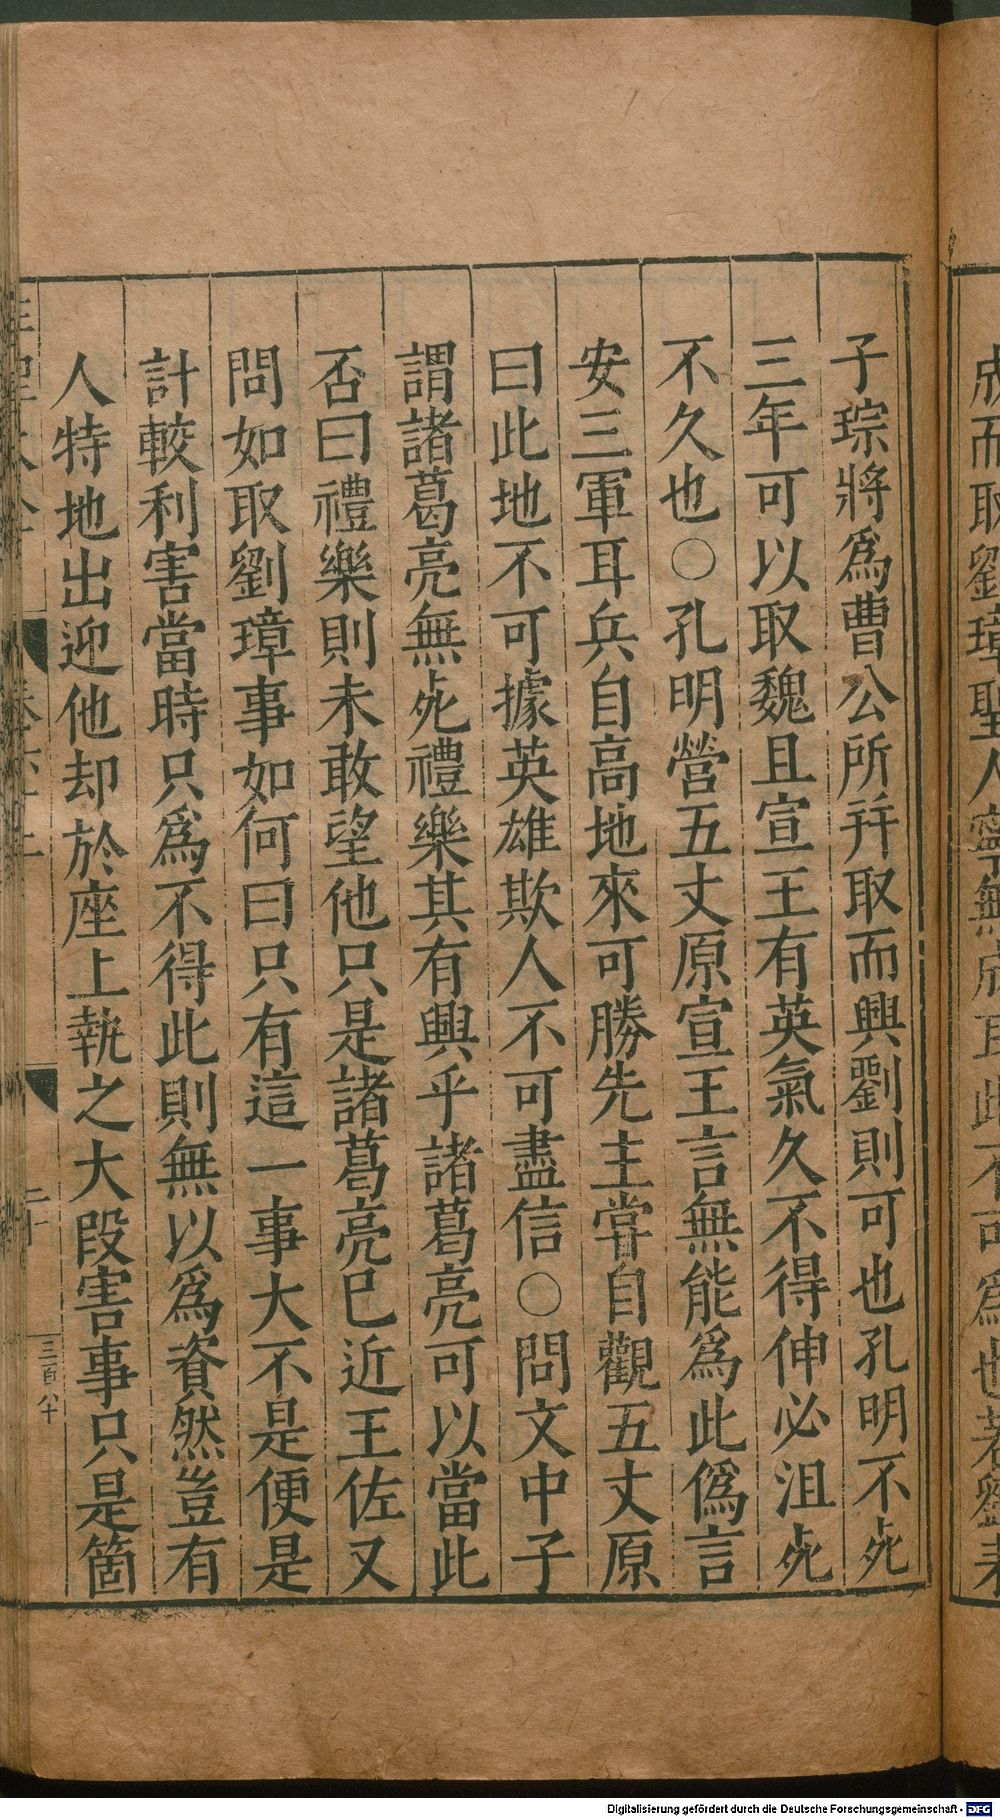 子琮將爲曹公所并取而興劉則可也孔明不死
三年可以取魏且宣王有英氣久不得伸必沮死
不久也○孔明營五丈原宣王言無能爲此僞言
安三軍耳兵自高地來可勝先主甞自觀五丈原
曰此地不可據英雄欺人不可盡信○問文中子
謂諸葛亮無死禮樂其有興乎諸葛亮可以當此
否曰禮樂則未敢望他只是諸葛亮已近王佐又
問如取劉璋事如何曰只有這一事大不是便是
計較利害當時只爲不得此則無以爲資然豈有
人特地出迎他却於座上執之大段害事只是箇
三百八十
Digitalisierung gefördert durch die Deutsche Forschungsgemeinschaft - DFG